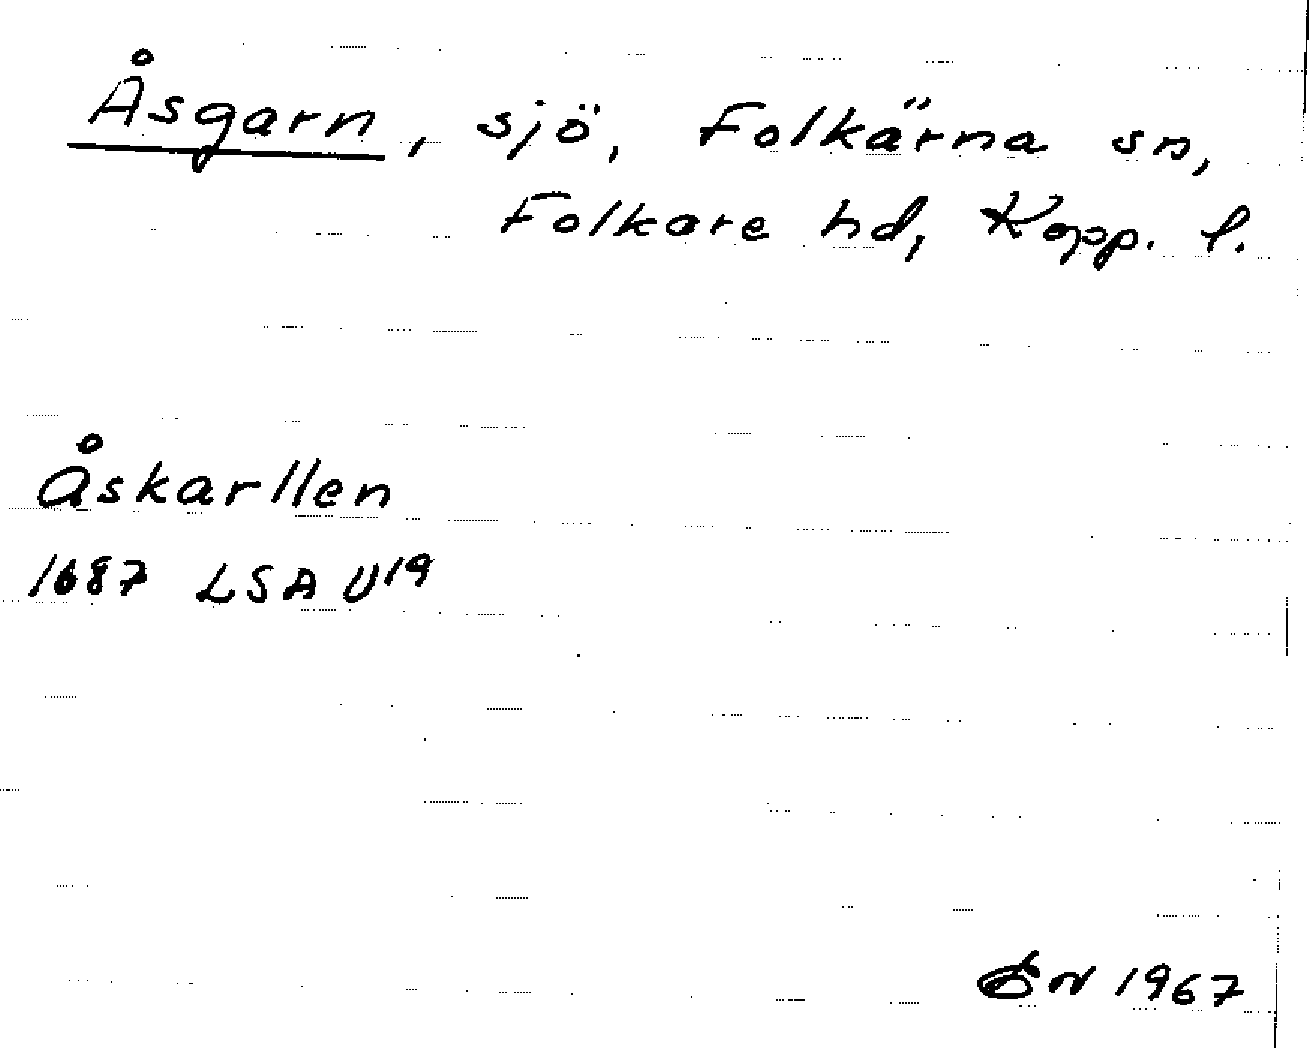 Åsgarn, sjö, Folkärna sn,
Folkare hd, Kopp. l.
Åskarllen
1687 LSA U19
1967